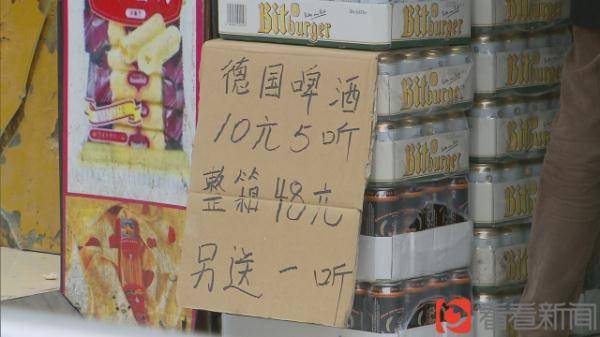 德国啤酒
10元5听
整箱48元
另送一听
Bitburger
Bitburger
Bitburger
Bitburger
Bitburger
Bitburger
Bit
Bit
看看新闻